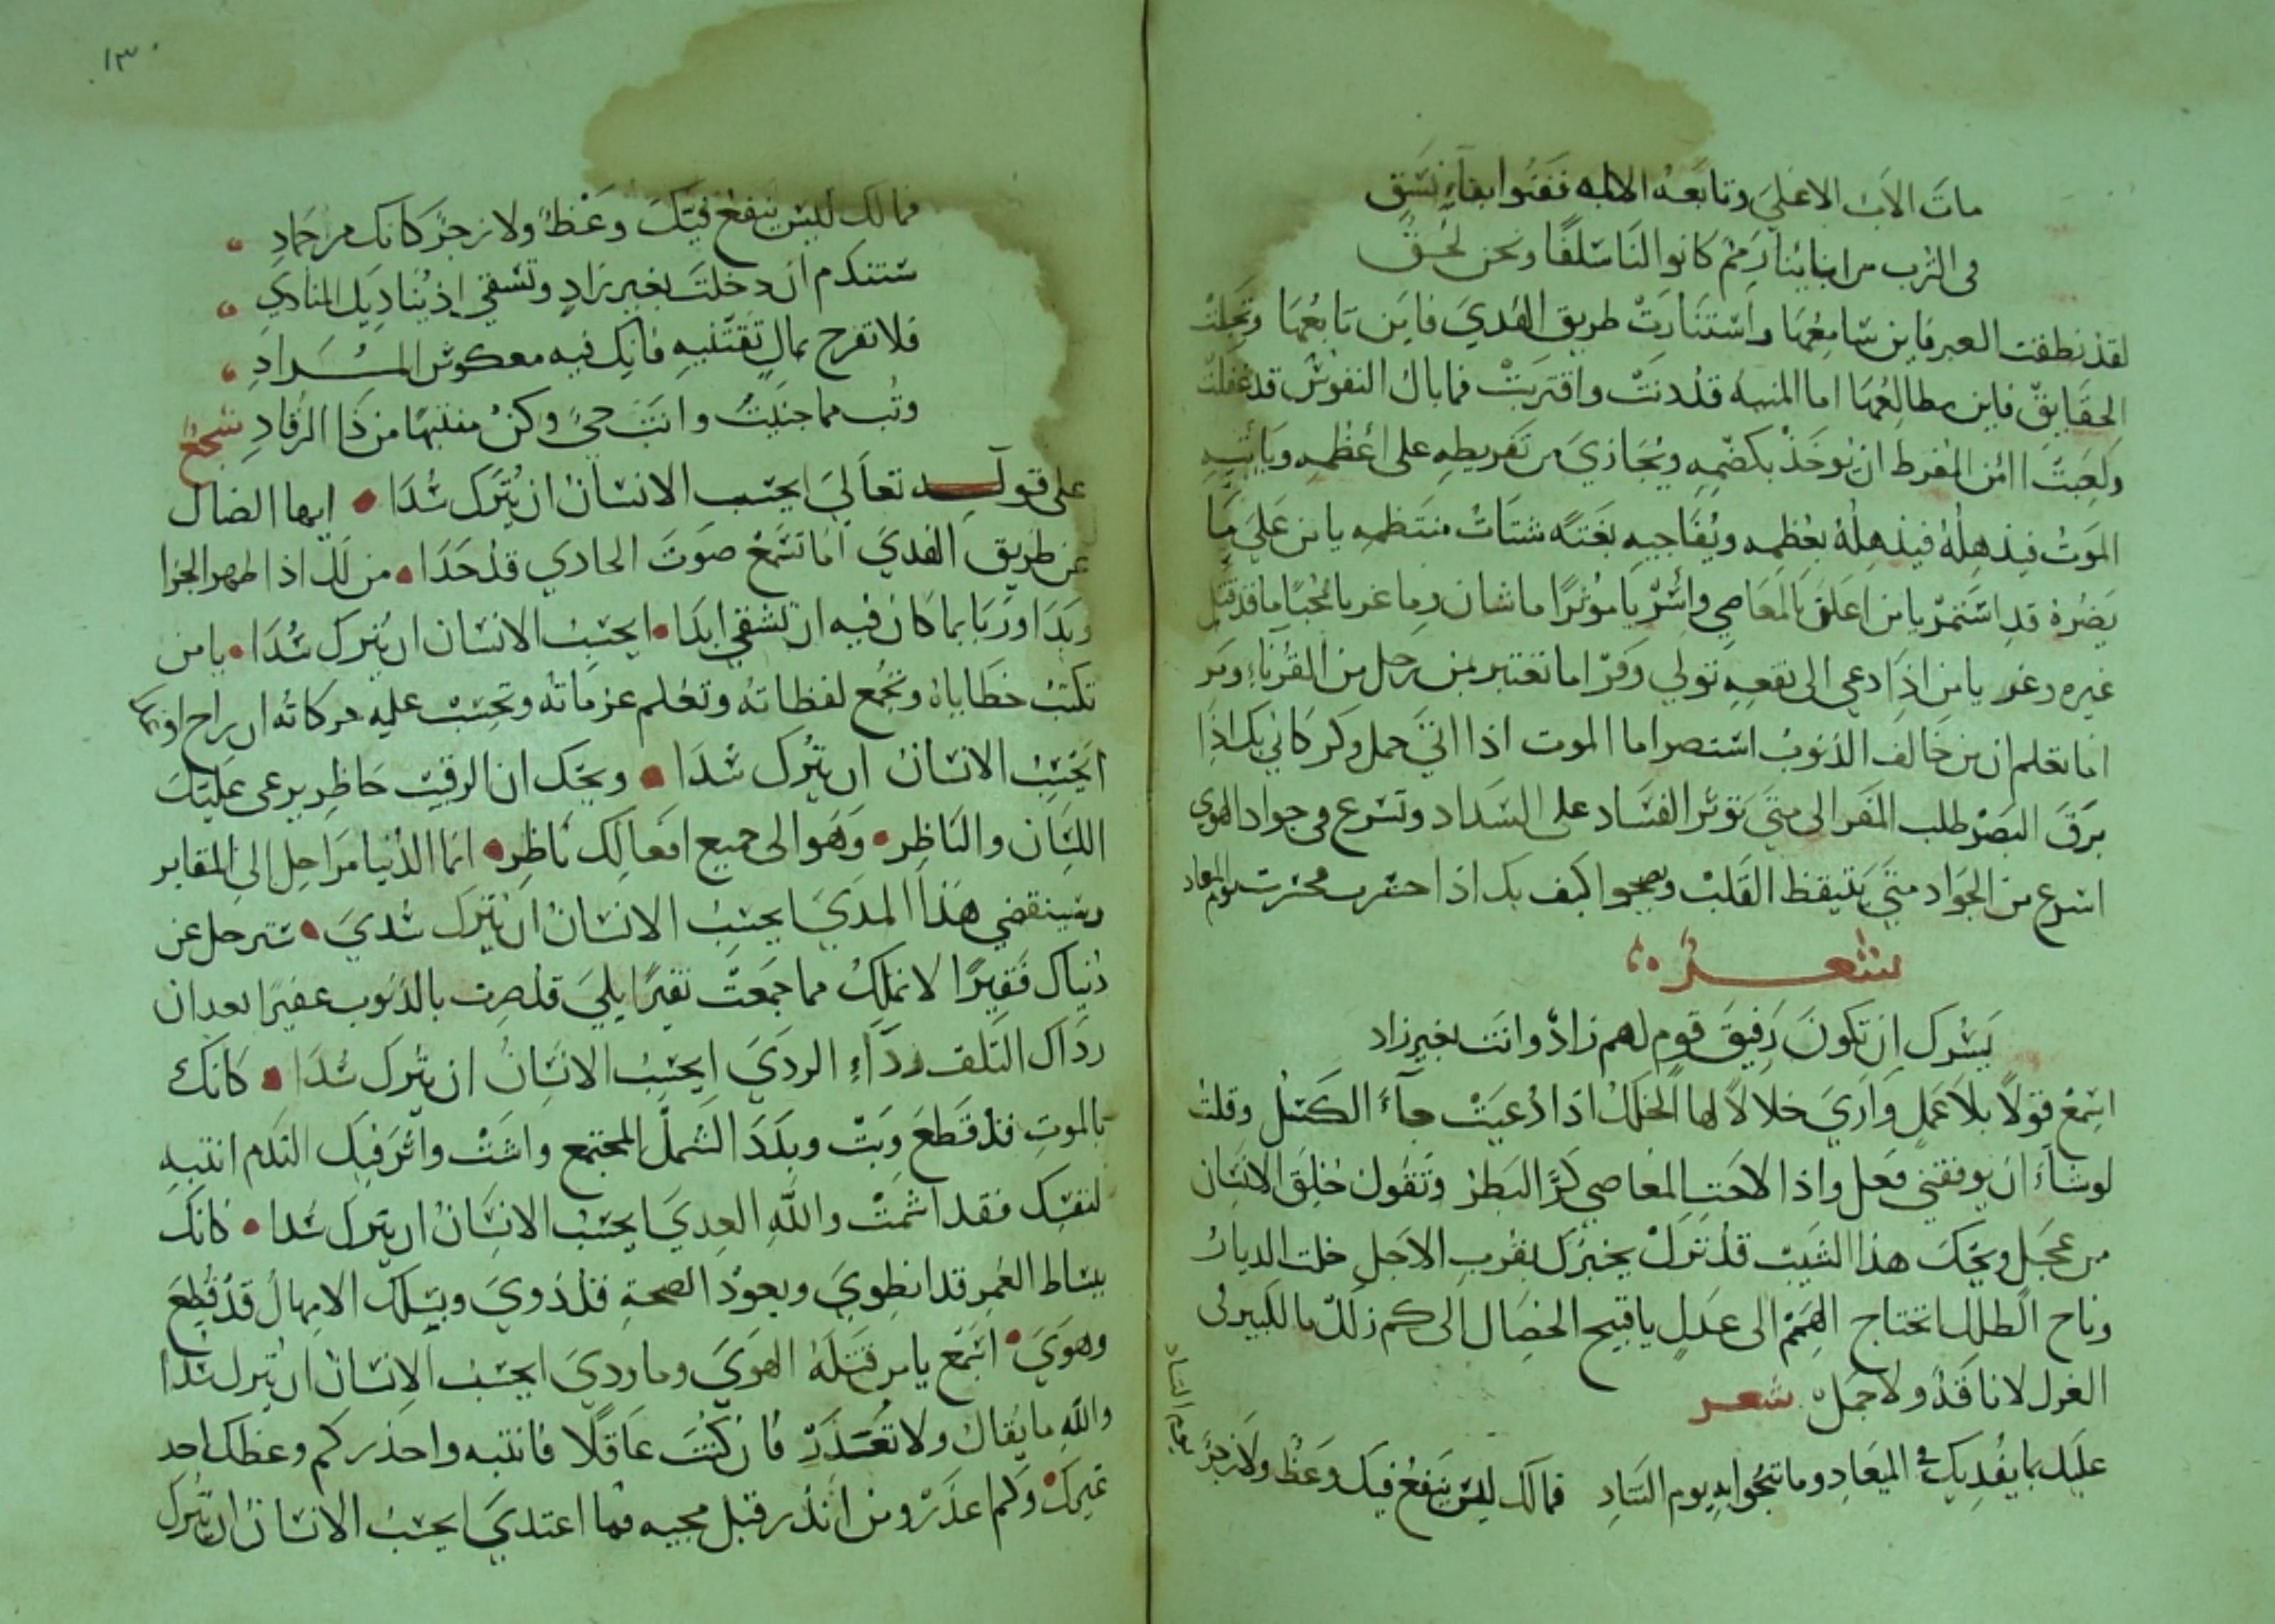 مات الاب الاعلي وتابعه الابله ففنوا بفاء نسق
فى الترب من ابنائنا رمم كانوا لنا سلفا ونحن لحق
لقد نطقت العبر فاين سامعها واستنارت طريق الهدي فاين تابعها وتجلت
الحقايق فاين مطالعها اما المنيه قد دنت واقتربت فما بال النفوس قد غفلت
ولعبت اامن المفرط ان يوخذ بكضمه ويجازي من تفريطه على اعظمه وياتيه
الموت فيذهله فيذهله بعظمه ويفاجيه بغتة شتات منتظمه يا من على ما
يضره قد استمر يا من اعلق بالمعاصي واسر يا موثرا ما شان وما غر يا محبا ما قد قتل
غيره وغر يا من اذا دعي الى نفعه تولي وفر اما تعتبر بمن رحل من القرناء ومر
اما تعلم ان من خالف الذنوب استضر اما الموت اذا اتي حمل وكر كاني بك اذا
برق البصر طلب المفر الى متي توثر الفساد على السداد وتسرع في جواد الهوي
اسرع من الجواد متي يتيقظ القلب ويصحوا كيف بك اذا حشرت محشرت يوم المعاد
شعر
يسرك ان تكون رفيق قوم لهم زاد وانت بغير زاد
اسمع قولا بلا عمل واري خلالا لها الخلل اذا دعيت جاء الكسل وقلت
لو شاء ان يوفقني فعل واذا لاحت المعاصي كر البطر وتقول خلق الانسان
من عجل ويحك هذا الشيب قد نزل يخبرك بقرب الاجل خلت الديار
وناح الطلل اتحتاج الهمم الى عدل يا قبيح الخصال الى كم زلل ما للكبير في
الغزل لا ناقة ولا جمل شعر
عليك بما يفديك في الميعاد وما تنجوا به يوم التناد فما لك ليس ينفع فيك وعظ ولا زجر
يوم التناد
١٣٠
فما لك ليس ينفع فيك وعظ ولا زجر كانك من جماد
ستندم ان دخلت بغير زاد وتشقي اذ يناديك المنادي
فلا تفرح بمال تقتنيه فانك فيه معكوس المراد
وتب مما جنيت وانت حي وكن منتبها من ذا الرقاد سجع
على قوله تعالي ايحسب الانسان ان يترك سدا ايها الضال
عن طريق الهدي اما تسمع صوت الحادي قد حدا من لك اذا ظهر الجزا
وبدا وربا بما كان فيه ان تشقي ابدا ايحسب الانسان ان يترك سدا يا من
تكتب خطاياه وتجمع لفظاته وتعلم عزماته وتحسب عليه حركاته ان راح او
ايحسب الانسان ان يترك سدا ويحك ان الرقيب حاظر يرعى عليك
اللسان والناظر وهو الى جميع افعالك ناظر انما الدنيا مراحل الى المقابر
وسينقضي هذا المدي ايحسب الانسان ان يترك سدي سترحل عن
دنياك فقيرا لا تملك مما جمعت نقيرا بلي قد صرت بالذنوب عفيرا بعد ان
رداك التلف رداء الردي ايحسب الانسان ان يترك سدا كانك
بالموت قد قطع وبت وبدد الشمل المجتمع واشت واثر فيك الندم انتبه
لنفسك فقد اشمت والله العدي ايحسب الانسان ان يترك سدا كانك
ببساط العمر قد انطوي وبعود الصحة قد ذوي وبسلك الامهال قد قطع
وهوي اسمع يا من قتله الهوي وما ودي ايحسب الانسان ان يترك سدا
والله ما يقال ولا تعذر فان كنت عاقلا فانتبه واحذر كم وعظك احد
غيرك وكم اعذر ومن انذر قبل مجيه فما اعتدي ايحسب الانسان ان يترك